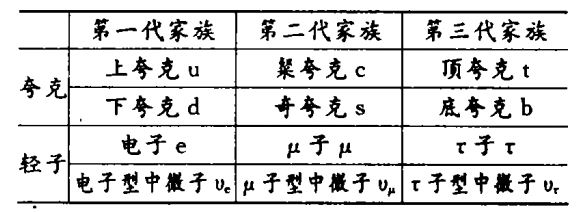 第一代家族 第二代家族 第三代家族
夸克 上夸克 u 粲夸克 c 顶夸克 t
下夸克 d 奇夸克 s 底夸克 b
轻子 电子 e μ子 μ τ子 τ
电子型中微子 υe μ子型中微子 υμ τ子型中微子 υτ